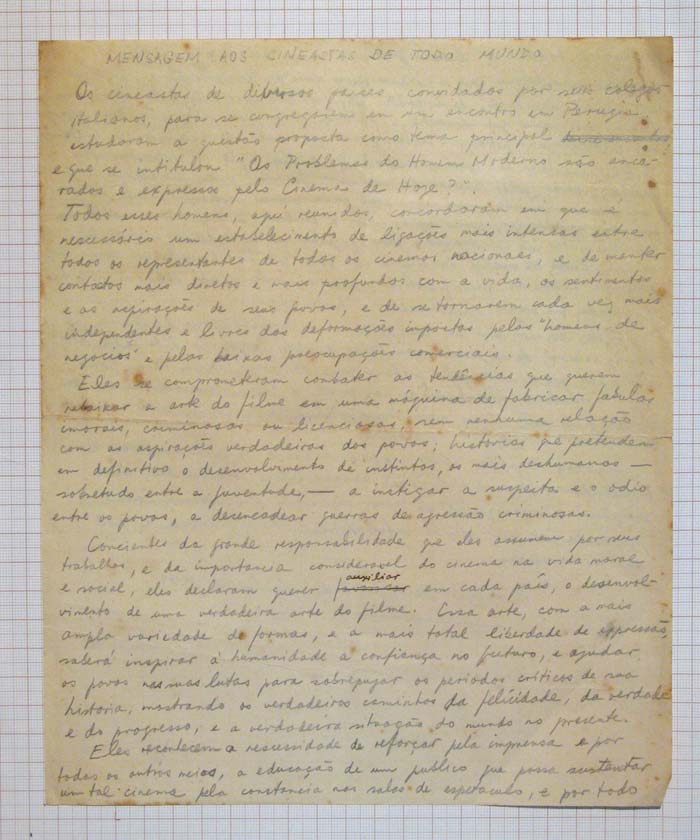 MENSAGEM AOS CINEASTAS DE TODO MUNDO
Os cineastas de diversos paises convidados por seus colegas
italianos, para se congregarem em um encontro em Perugia
estudaram a questão proposta como tema principal
e que se intitulou "Os Problemas do Homem Moderno são enca-
rados e expressos pelo Cinema de Hoje?".
Todos esses homens, aqui reunidos, concordaram em que é
nescessário um estabelecimento de ligações mais intensas entre
todos os representantes de todos os cinemas nacionaes, e de manter
contactos mais diretos e mais profundos com a vida, os sentimentos
e as aspirações de seus povos, e de se tornarem cada vez mais
independentes e livres das deformações impostas pelos "homens de
negocios" e pelas baixas preocupações comerciais.
Eles se comprometeram combater as tendências que querem
rebaixar a arte do filme em uma máquina de fabricar fabulas
imorais, criminosas ou licenciosas, sem nenhuma relação
com as aspirações verdadeiras dos povos; historias que pretendem
em definitivo o desenvolvimento de instintos, os mais deshumanos —
sobretudo entre a juventude, — a instigar a suspeita e o odio
entre os povos, a desencadear guerras de agressão criminosas.
Concientes da grande responsabilidade que eles assumem por seus
trabalhos, e da importancia consideravel do cinema na vida moral
e social, eles declaram querer auxiliar em cada país, o desenvol-
vimento de uma verdadeira arte do filme. Essa arte, com a mais
ampla variedade de formas, e a mais total liberdade de expressão,
saberá inspirar à humanidade a confiança no futuro, e ajudar
os povos nas suas lutas para sobrepujar os periodos criticos de sua
historia, mostrando os verdadeiros caminhos da felicidade, da verdade
e do progresso, e a verdadeira situação do mundo no presente.
Eles reconhecem a nescessidade de reforçar pela imprensa e por
todos os outros meios, a educação de um publico que possa sustentar
um tal cinema pela constancia nas salas de espetaculo, e por todo